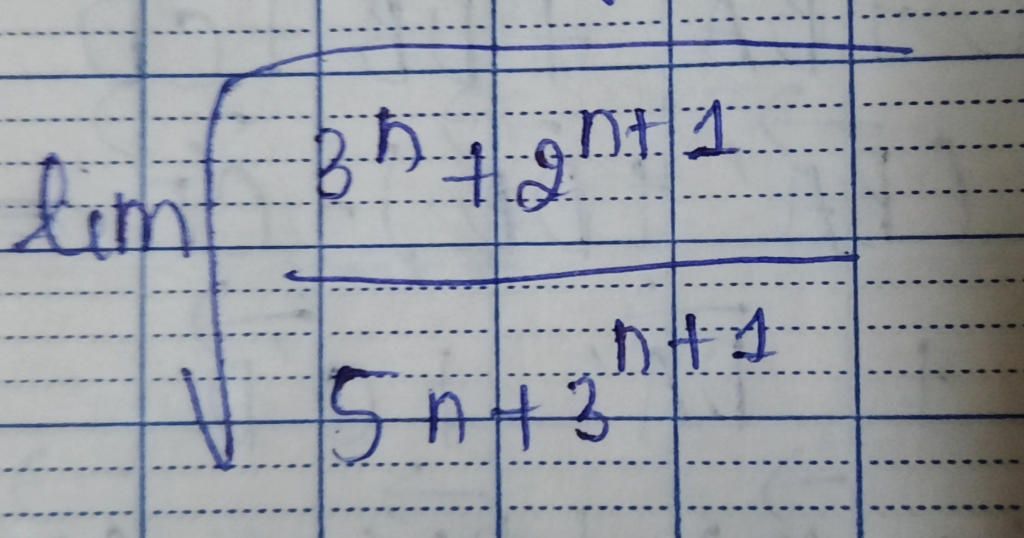 lim √
3ⁿ + 2ⁿ⁺¹
5n + 3ⁿ⁺¹